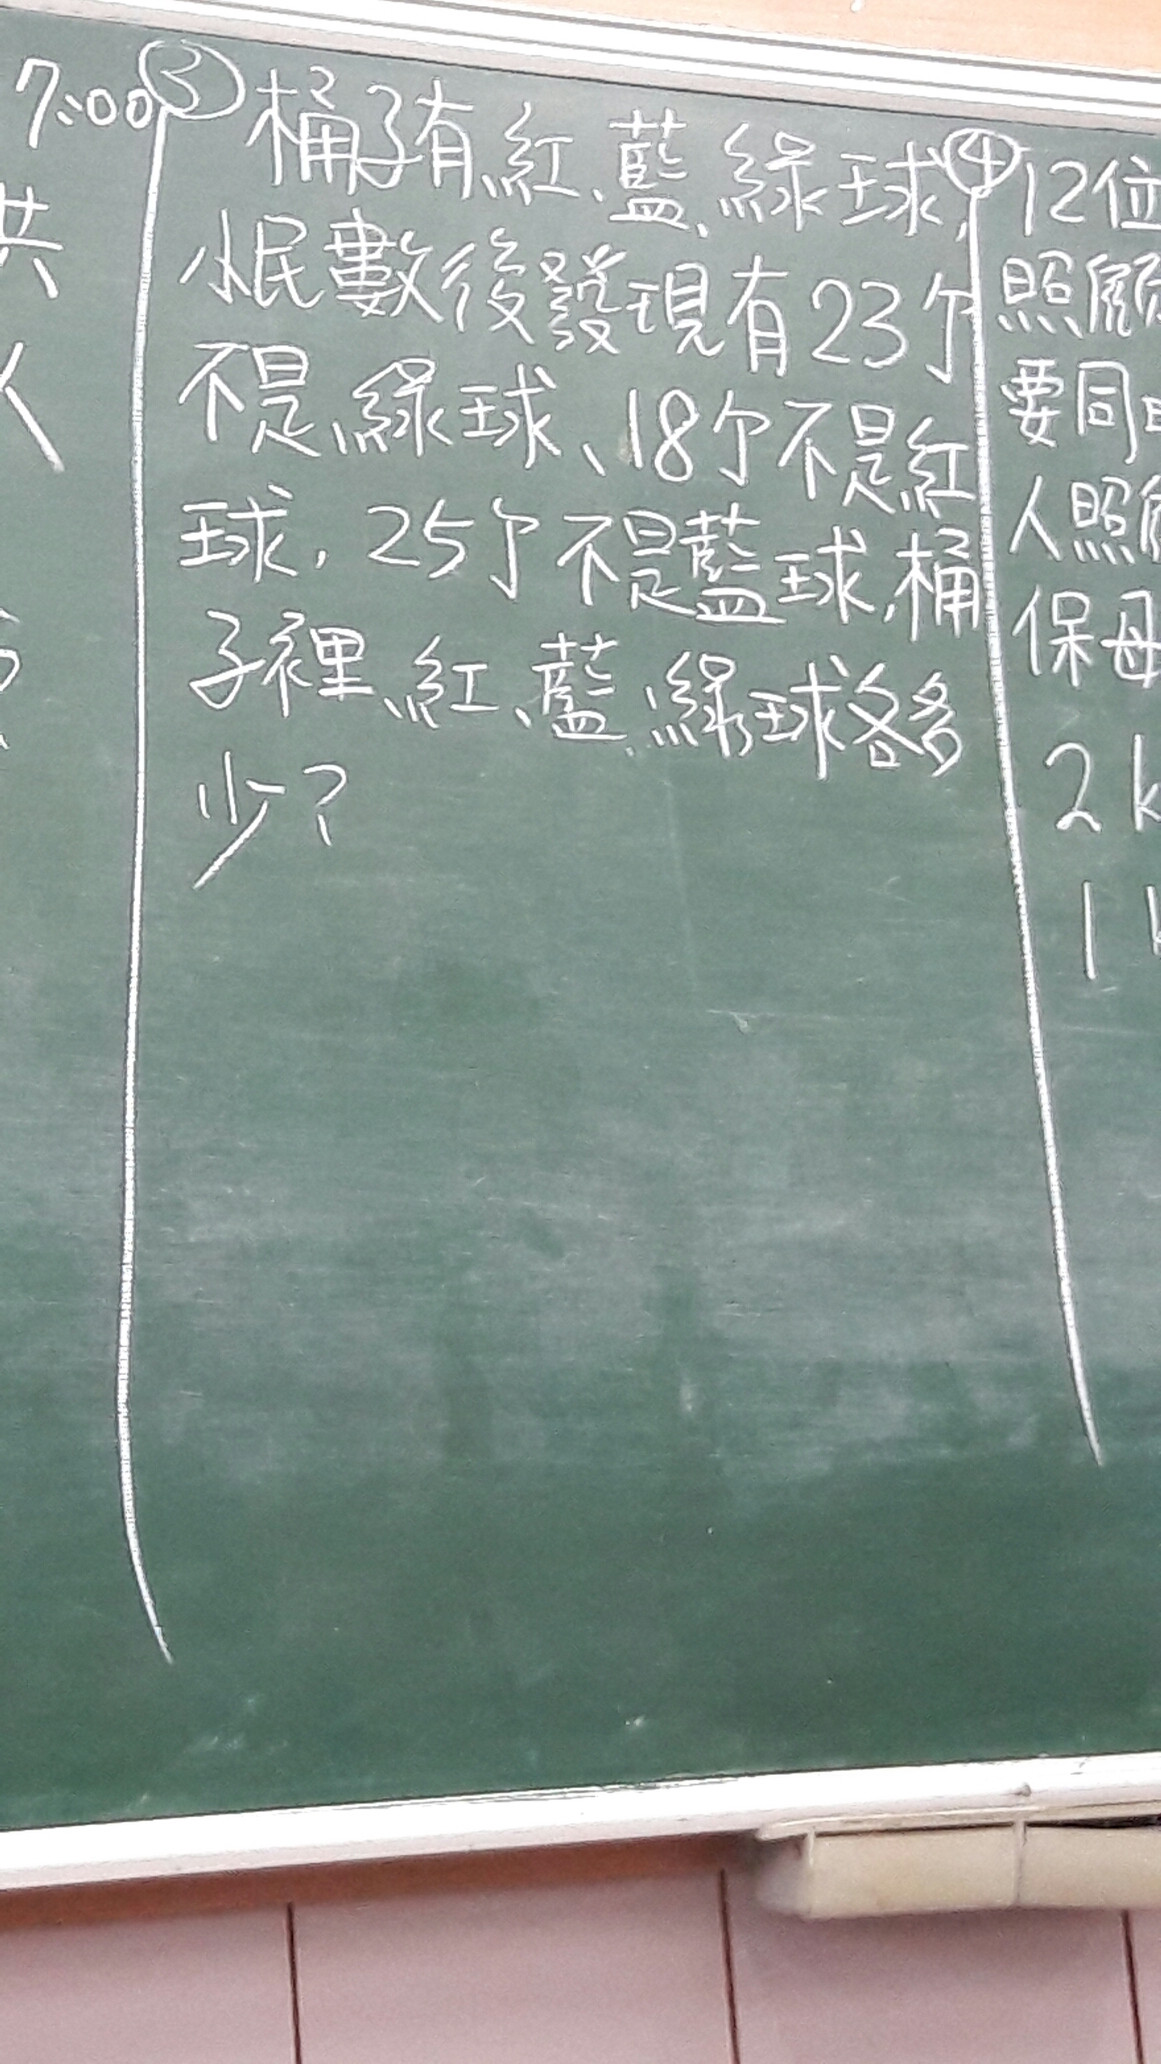 7:00
共
人
③ 桶子有紅、藍、綠球,
小民數後發現有23个
不是綠球、18个不是紅
球,25个不是藍球,桶
子裡紅、藍、綠球各多
少?
④ 12位
照顧
要同時
人照顧
保母
2 k
1 k